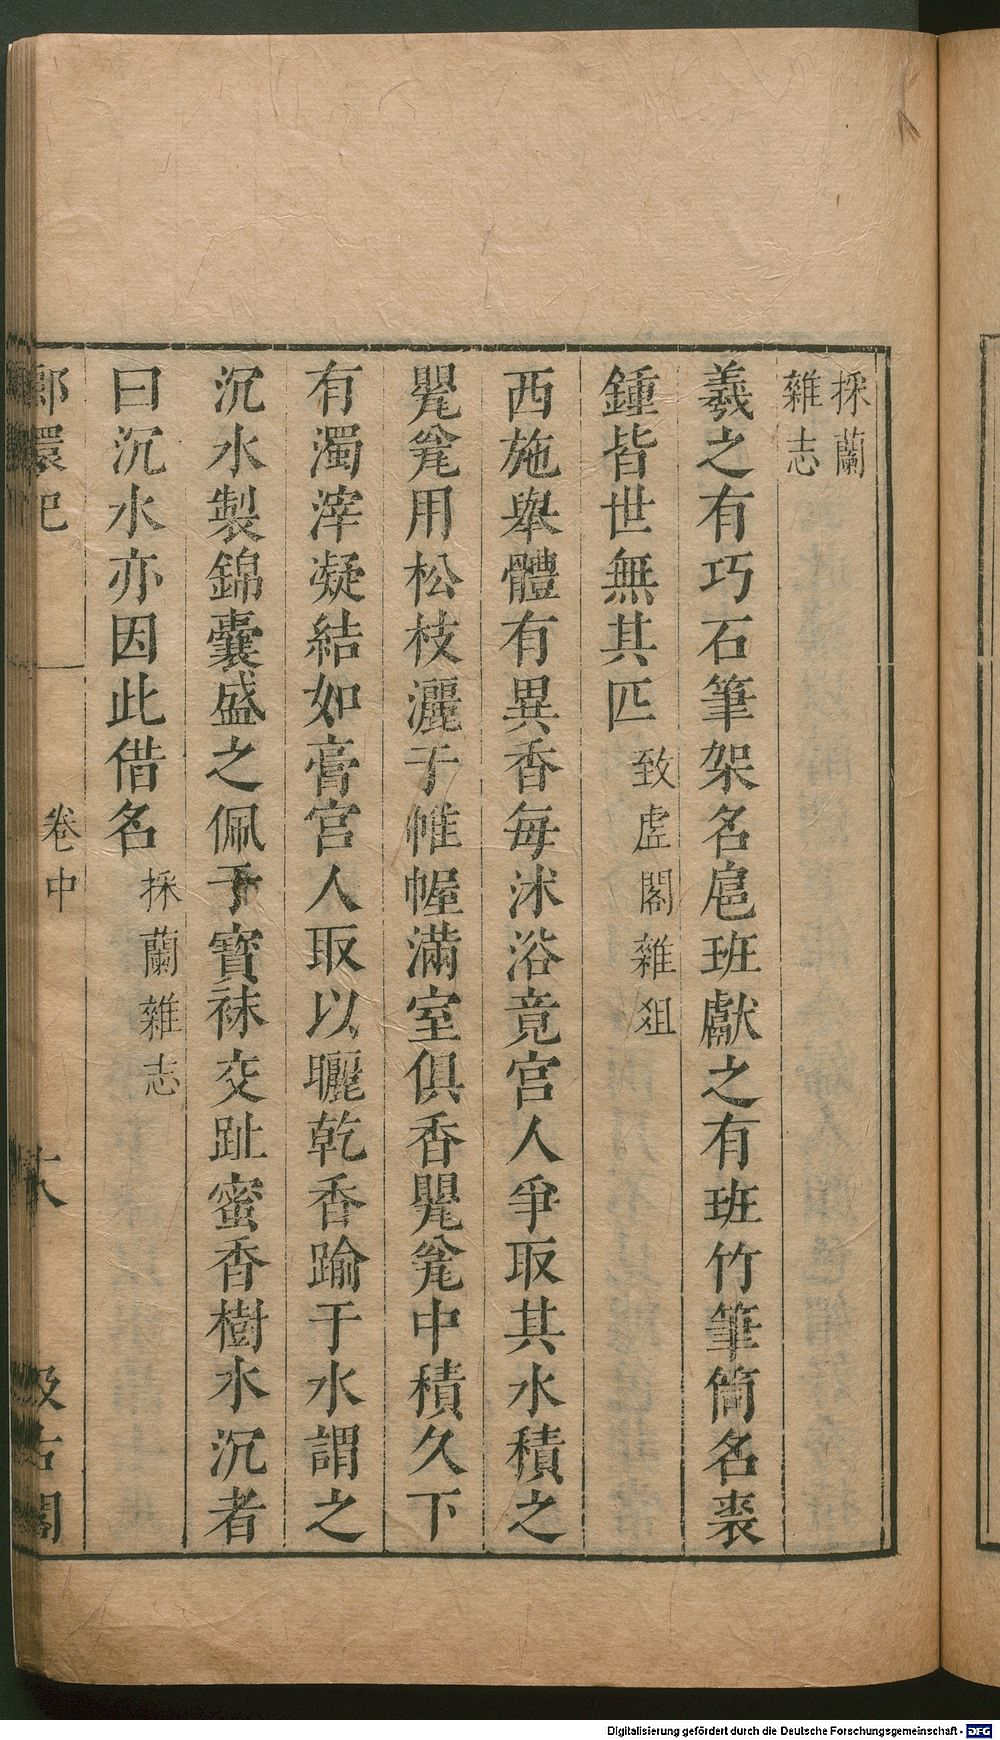 採蘭
雜志
羲之有巧石筆架名扈班獻之有班竹筆筒名裘
鍾皆世無其匹致虛閣雜俎
西施舉體有異香每沐浴竟宮人爭取其水積之
甖甕用松枝灑于帷幄滿室俱香甖甕中積久下
有濁滓凝結如膏宮人取以曬乾香踰于水謂之
沉水製錦囊盛之佩于寳袜交趾蜜香樹水沉者
曰沉水亦因此借名採蘭雜志
卷中
Digitalisierung gefördert durch die Deutsche Forschungsgemeinschaft - DFG